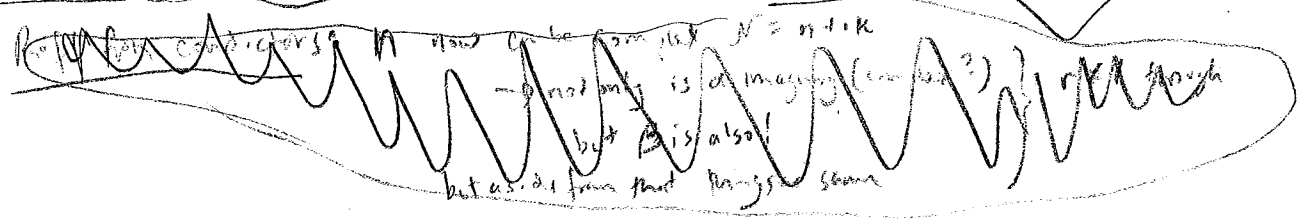 R.. for conductors: n now can be complex N = n + iK
→ not only is α imaginary (complex?) } though
but β is also!
but aside from that things same